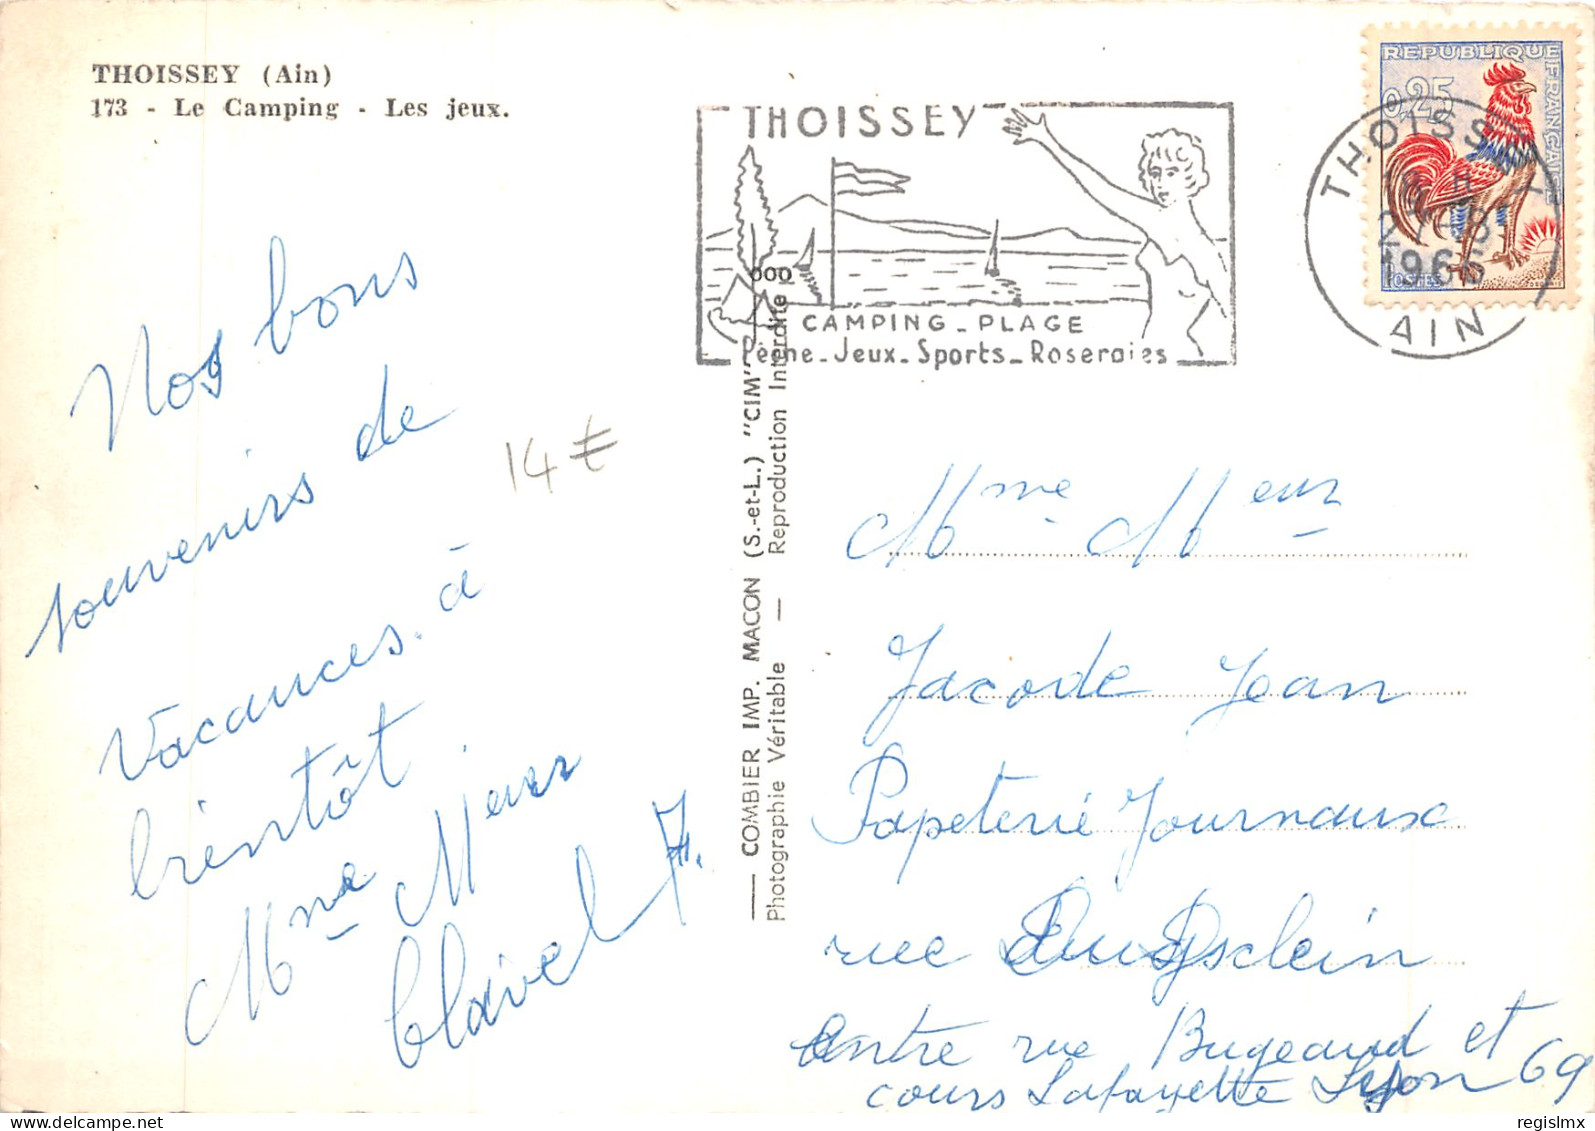 THOISSEY (Ain)
173 - Le Camping - Les jeux.
THOISSEY
CAMPING - PLAGE
Pêche - Jeux - Sports - Roseraies
REPUBLIQUE FRANÇAISE
0,25
POSTES
THOISSEY
27
1966
AIN
Nos bons
souvenirs de
vacances. à
bientôt
Mme Meur
Clavel F.
14 €
COMBIER IMP. MACON (S.-et-L.) "CIM"
Photographie Véritable — Reproduction Interdite
Mme Meur
Jacode Jean
Papeterie Journaux
rue
entre rue Bugeaud et
cours Lafayette Lyon 69
regislmx
delcampe.net